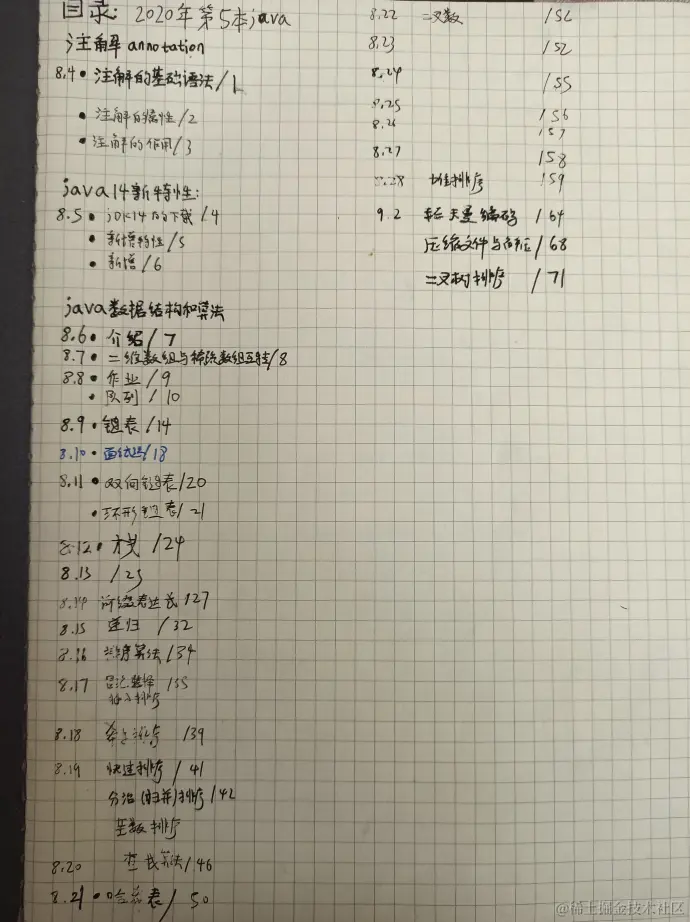 目录: 2020年第5本java
注解 annotation
8.4 • 注解的基础语法/1
• 注解的属性/2
• 注解的作用/3
java 14新特性:
8.5 • jDK14的下载/4
• 新增特性/5
• 新增/6
java数据结构和算法
8.6 • 介绍/7
8.7 • 二维数组与稀疏数组互转/8
8.8 • 作业/9
• 队列/10
8.9 • 链表/14
8.10 • 面试题/18
8.11 • 双向链表/20
• 环形链表/21
8.12 • 栈/24
8.13 /25
8.14 缀表达式/27
8.15 递归/32
8.16 排序算法/34
8.17 选择 /35
排序
8.18 排序 /39
8.19 快速排序/41
分治(归并)排序/42
基数排序
8.20 查找算法/46
8.21 • 哈希表/50
8.22 二叉数 /52
8.23 /52
8.24 /55
8.25 156
8.26 157
8.27 158
8.28 堆排序 159
9.2 赫夫曼编码/64
压缩文件与解压/68
二叉树排序/71
@稀土掘金技术社区